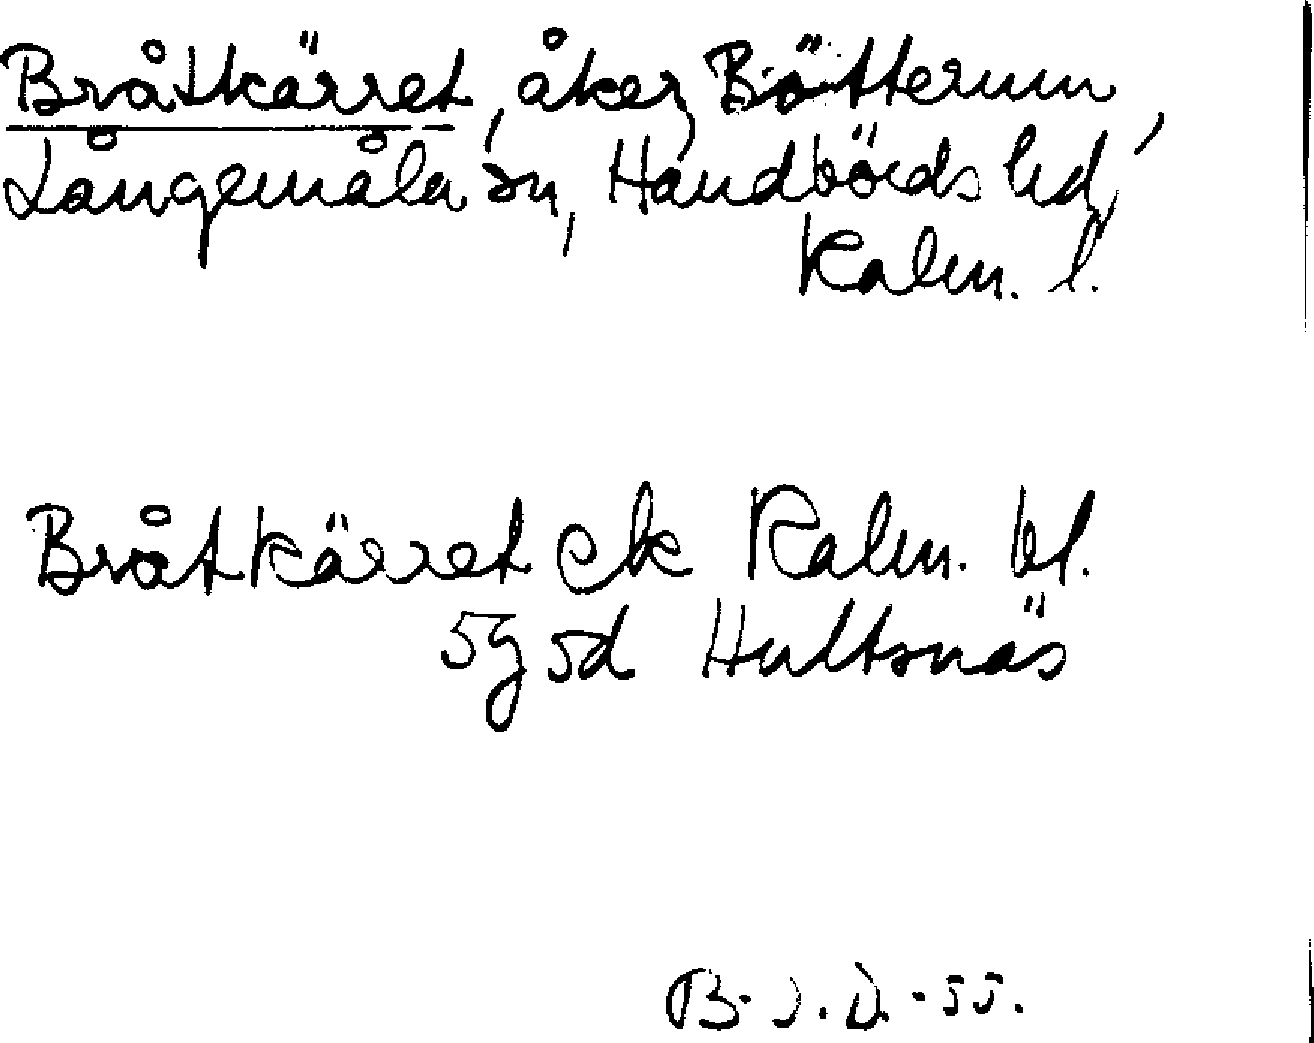 Bråtkärret, åker, Bötterum,
Långemåla sn, Handbörds hd,
Kalm. l.
Bråtkärret ek Kalm. bl.
5g5d Hultsnäs
B. J. D. -55.